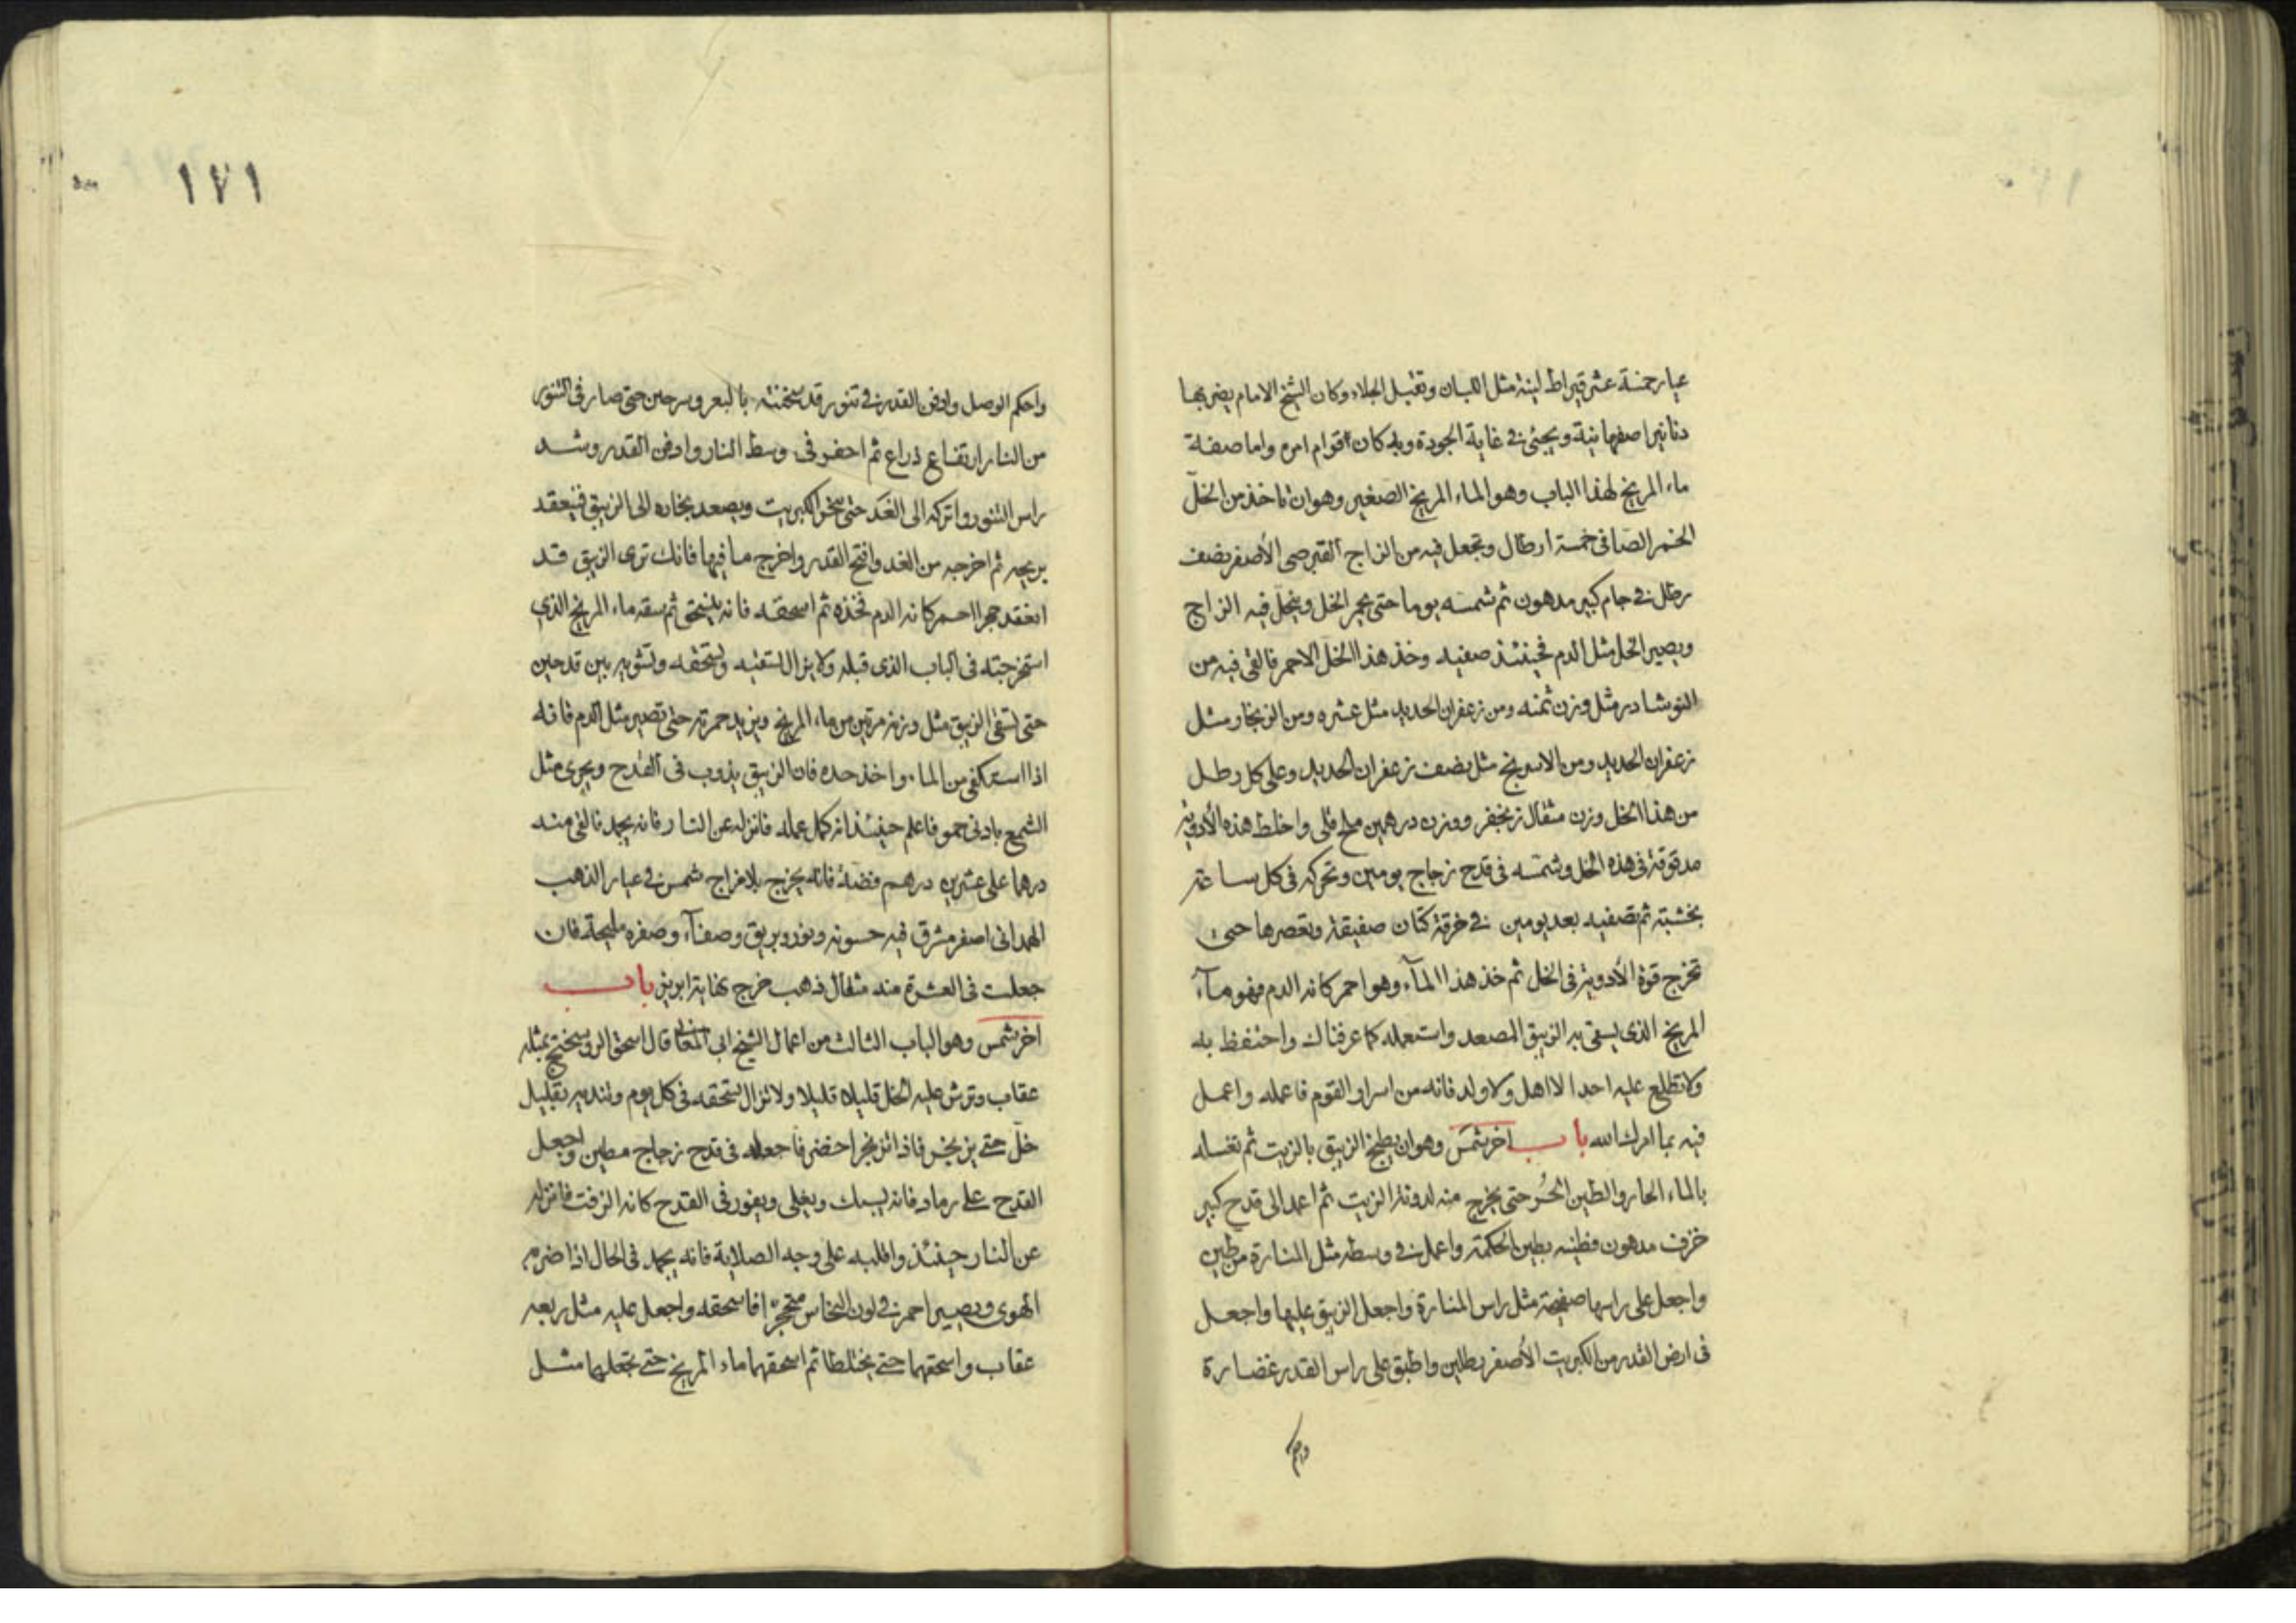 عيار خمسة عشر قيراط لينة مثل اللبان وتقبل الجلاء وكان الشيخ الامام يضربها
دنانيرا اصفهانية ويجئ في غاية الجودة وبه كان اقوام امره واما صفة
ماء المريخ لهذا الباب وهو الماء المريخ الصغير وهو ان تاخذ من الخلّ
الخمر الصافى خمسة ارطال وتجعل فيه من الزاج القبرصى الأصفر نصف
رطل في جام كبير مدهون ثم شمسه يوما حتى يحمر الخل وينحلّ فيه الزاج
ويصير الخل مثل الدم فحينئذ صفيه وخذ هذا الخل الاحمر فالقى فيه من
النوشادر مثل وزن ثمنه ومن زعفران الحديد مثل عشره ومن الزنجار مثل
زعفران الحديد ومن الاسرنج مثل نصف زعفران الحديد وعلى كل رطل
من هذا الخل وزن مثقال زنجفر ووزن درهمين ملح قلى واخلط هذه الأدوية
مدقوقة فى هذه الخل وشمّسه فى قدح زجاج يومين وتحركه فى كل ساعة
بخشبة ثم تصفيه بعد يومين في خرقة كتان صفيقة وتعصرها حتى
تخرج قوة الأدوية فى الخل ثم خذ هذا المآء وهو احمر كانه الدم فهو مآء
المريخ الذى يسقى به الزيبق المصعد واستعمله كما عرفناك واحتفظ به
ولا تطلع عليه احدا لا اهل ولا ولد فانه من اسرار القوم فاعمله واعمل
فيه بما امرك الله باب اخر شمس وهو ان يطبخ الزيبق بالزيت ثم تغسله
بالماء الحار والطين الحُر حتى يخرج منه لدونة الزيت ثم اعمد الى قدح كبير
خزف مدهون فطينه بطين الحكمة واعمل في وسطه مثل المنارة من طين
واجعل على راسها صفيحة مثل راس المنارة واجعل الزيبق عليها واجعل
فى ارض القدر من الكبريت الأصفر رطلين واطبق على راس القدر غضارة
واحكم
١٧١
واحكم الوصل وادفن القدر في تنور قد سخنته بالبعر وسرجين حتى صار فى التنور
من النار ارتفاع ذراع ثم احفر فى وسط النار وادفن القدر وشد
راس التنور واتركه الى الغد حتى يسخن الكبريت ويصعد بخاره الى الزيبق فينعقد
بريحه ثم اخرجه من الغد وافتح القدر واخرج ما فيها فانك ترى الزيبق قد
انعقد حجرا احمر كانه الدم فخذه ثم اسحقه فانه ينسحق ثم سقه ماء المريخ الذي
استخرجته فى الباب الذى قبله ولا يزال تسقيه وتسحقه وتشويه بين قدحين
حتى تسقى الزيبق مثل وزنه مرتين من ماء المريخ ويزيد حمرته حتى تصير مثل الدم فانه
اذا استكفى من الماء واخذ حده فان الزيبق يذوب فى القدح ويجرى مثل
الشمع بادنى حمو فاعلم حينئذ انه كمل عمله فانزله عن النار فانه يجمد فالقى منه
درهما على عشرين درهم فضة فانه يخرج بلا مزاج شمس في عيار الذهب
الهمدانى اصفر مشرق فيه حسونه ونور وبريق وصفآء وصفره مليحة فان
جعلت فى العشرة منه مثقال ذهب خرج نهاية ابريز باب
اخر شمس وهو الباب الثالث من اعمال الشيخ ابى المعالى قال اسحق الروسختج بمثله
عقاب وترش عليه الخل قليلا قليلا ولا تزال تسحقه فى كل يوم وتنديه بقليل
خلّ حتى يزنجر فاذا تزنجر اخضر فاجعله فى قدح زجاج مطين واجعل
القدح على رماد فانه ليسبك ويغلى ويفور فى القدح كانه الزفت فانزله
عن النار حينئذ واقلبه على وجه الصلاية فانه يجمد فى الحال اذا ضربه
الهوى ويصير احمر في لون النحاس متحجرا فاسحقه واجعل عليه مثل ربعه
عقاب واسحقهما حتى يختلطا ثم اسحقهما ماء المريخ حتى تجعلهما مثل